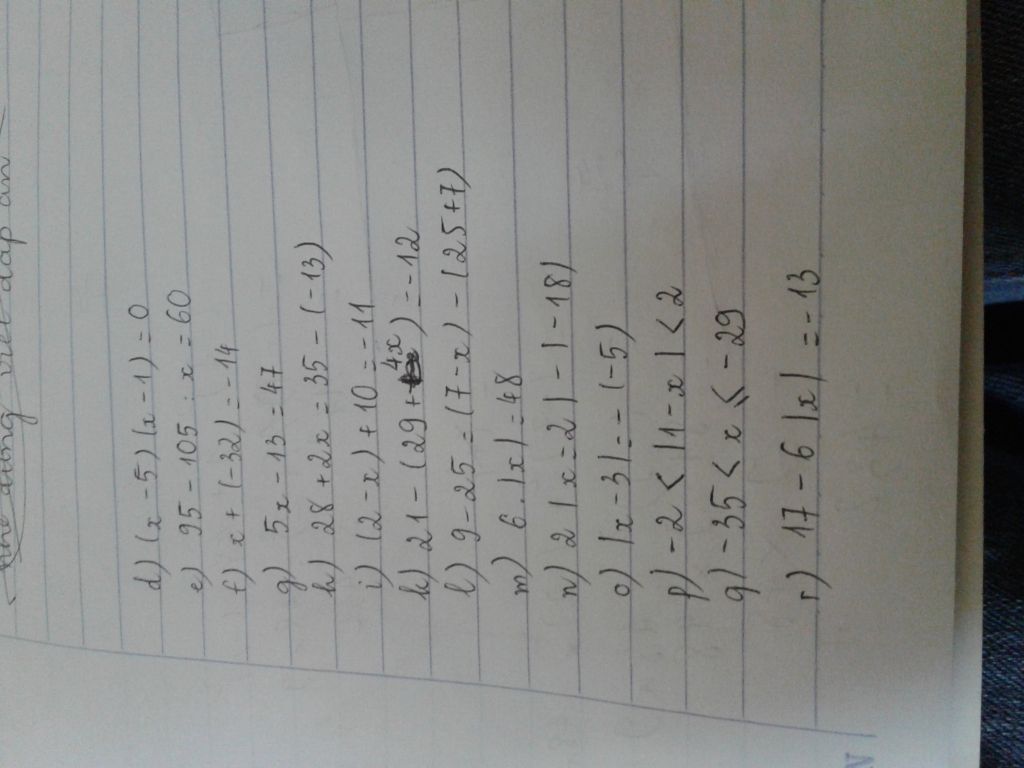 d) (x-5)(x-1)=0
e) 95-105:x=60
f) x+(-32)=-14
g) 5x-13=47
h) 28+2x=35-(-13)
i) (2-x)+10=-11
k) 21-(29+4x)=-12
l) 9-25=(7-x)-(25+7)
m) 6.|x|=48
n) 2|x-2|-|-18|
o) |x-3|=-(-5)
p) -2<|1-x|<2
q) -35<x≤-29
r) 17-6|x|=-13